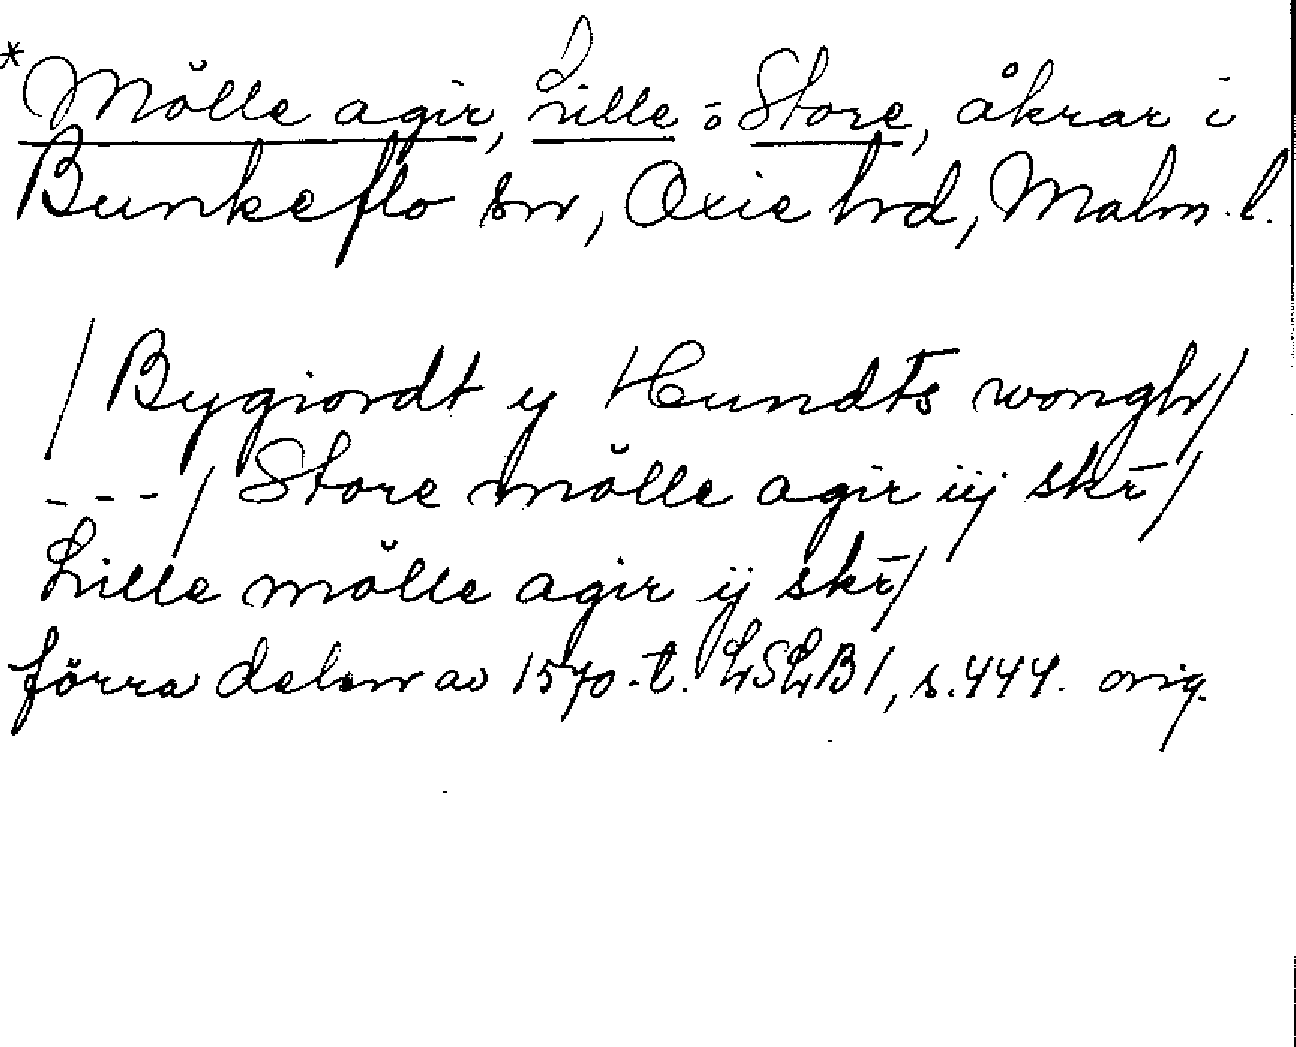 *Mŏlle agir, Lille o Store, åkrar i
Bunkeflo sn, Oxie hd, Malm. l.
/ Bygiordt y Hundts wongh/
--- / Store mŏlle agir iij skr̄/
Lille mŏlle agir ij skr̄/
förra delen av 1570-t. LSLB1, s. 444. orig.